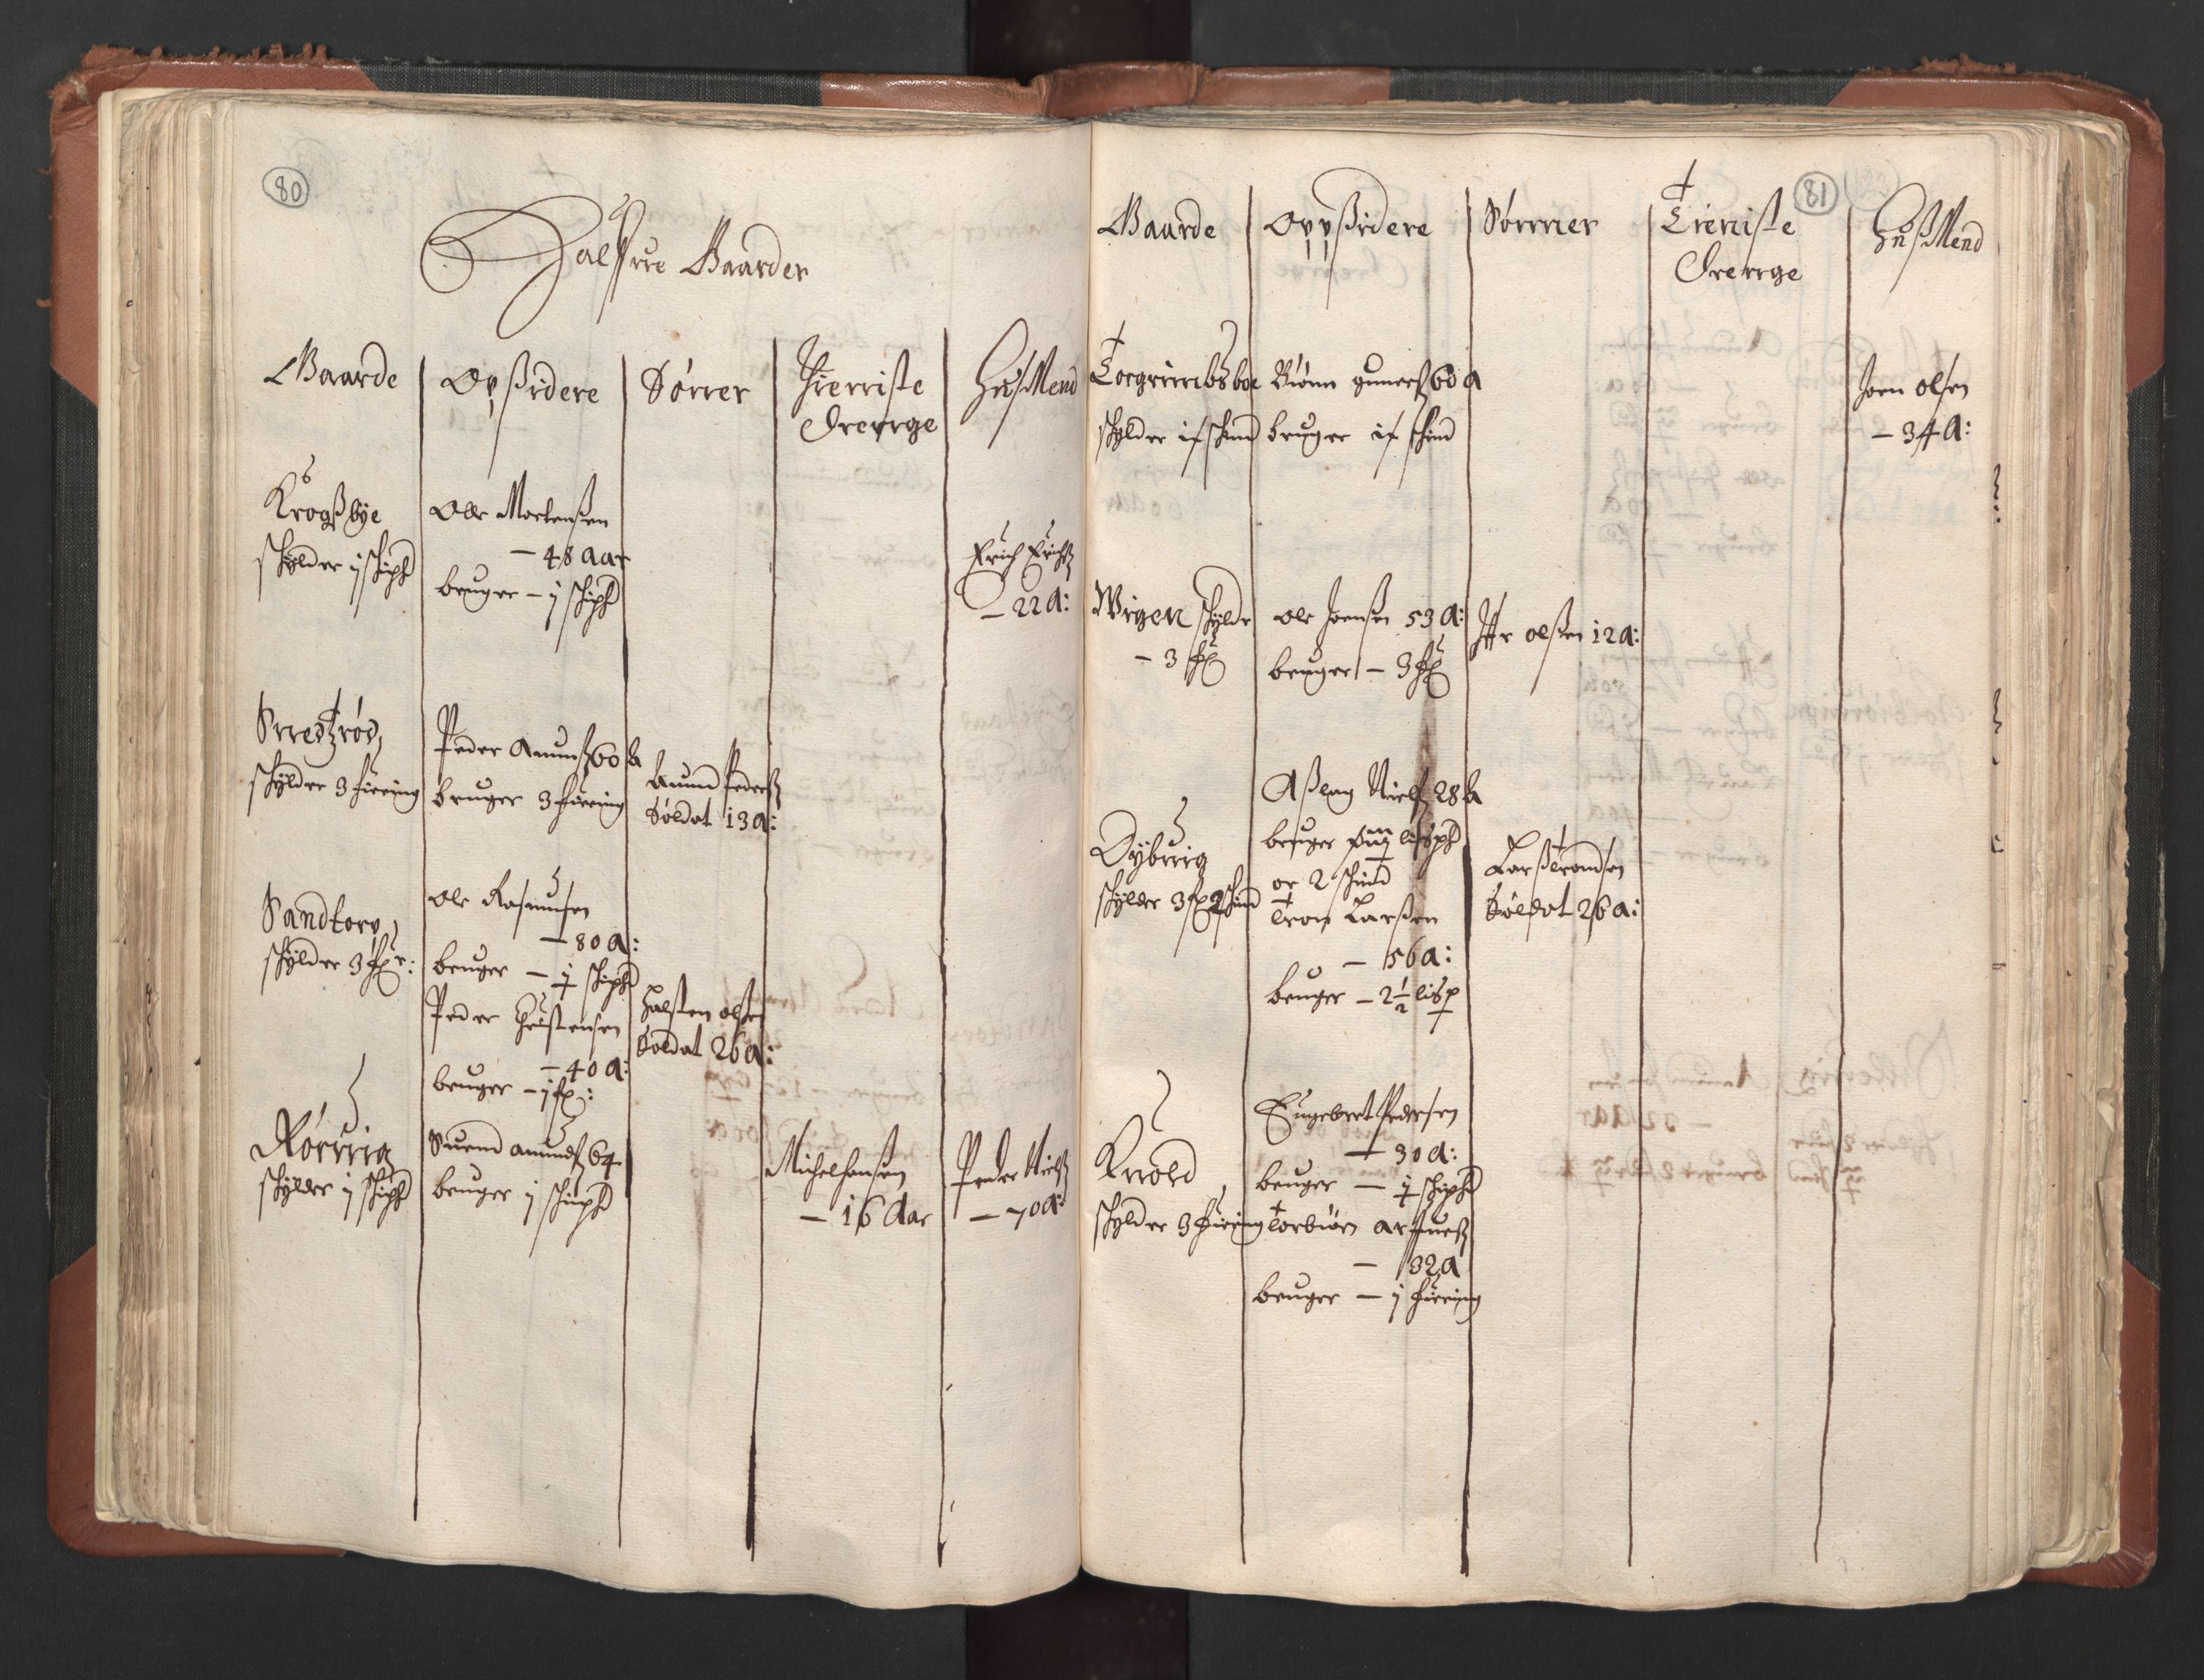 80
Halfue Gaarder
Gaarde Opsidere Sønner Thieniste Drenge Husmend
Krogsbye
schylder j schipd
Olle Mortensen
– 48 aar
bruger – j schipd
Erich Erichs
– 22 a:
schylder 3 fiering
Peder Amunds 60 a
bruger 3 fiering
Amund Peders
Soldat 13 a:
Sandtorp
schylder 3 fr:
Ole Rasmusen
– 80 a:
bruger – ½ schipd
Peder Christensen
– 40 a:
bruger – j fr:
Halsten olsen
Soldat 26 a:
Rørvig
schylder j schipd
Suend amunds 64
bruger j schipd
Michel hansen
– 16 Aar
Peder Niels
– 70 a:
81
Gaarde Oppsidere Sønner Tieniste Drenge Husmend
Torgrimsboe
schylder if schind
Biønn gunners 60 a
bruger if schind
Joen olsen
– 34 a:
Wigen schylder
– 3 fr
ole Joensen 53 a:
bruger – 3 fr
olsen 12 a:
Dybvig
schylder 3 fr 2 schind
Aslag Niels 28 a
bruger lispd
oc 2 schind
Tron Larsen
– 56 a:
bruger – 2½ lisp
Lars tronsen
Soldat 26 a:
schylder 3 fiering
Engebret Pedersen
– 30 a:
bruger – ½ schipd
Torbiørn
– 32 a
bruger – j fiering